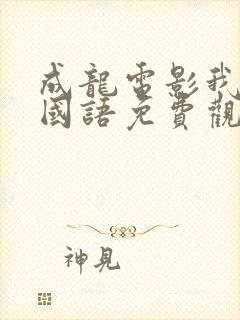 成龍電影我
國語免費觀
神見